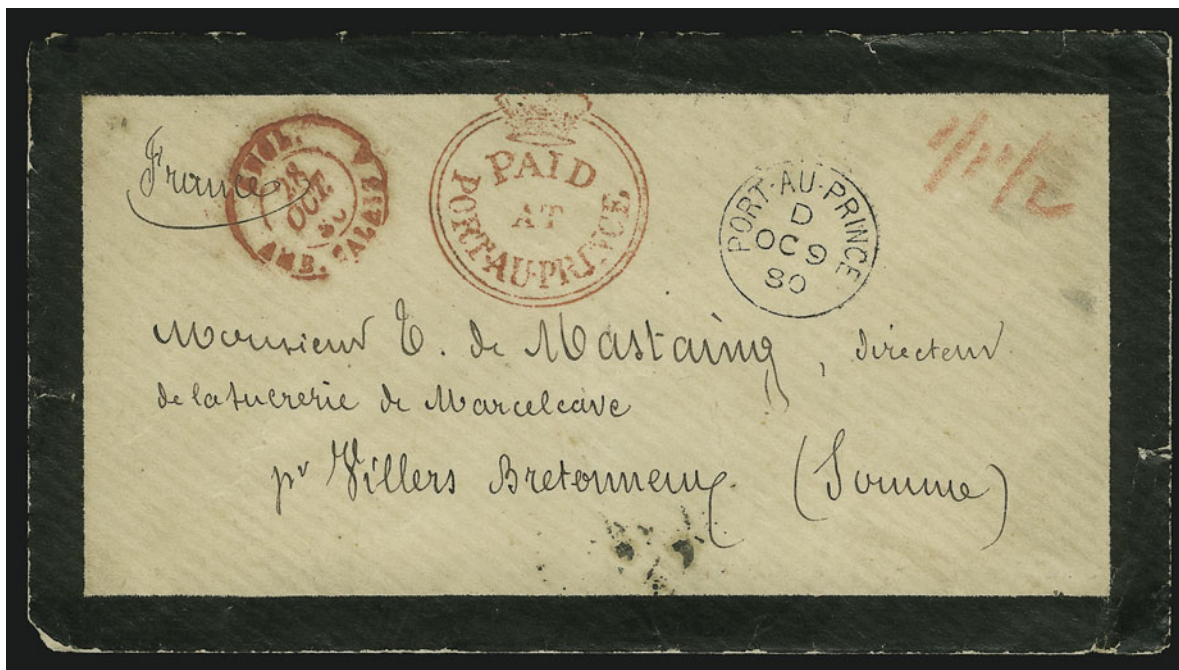 France
28
OCT
80
AMB. CALAIS
PAID
AT
PORT-AU-PRINCE
PORT-AU-PRINCE
D
OC 9
80
1/11/2
Monsieur E. de Mastaing, directeur
de la sucrerie de Marcelcave
pr Villers Bretonneux
(Somme)